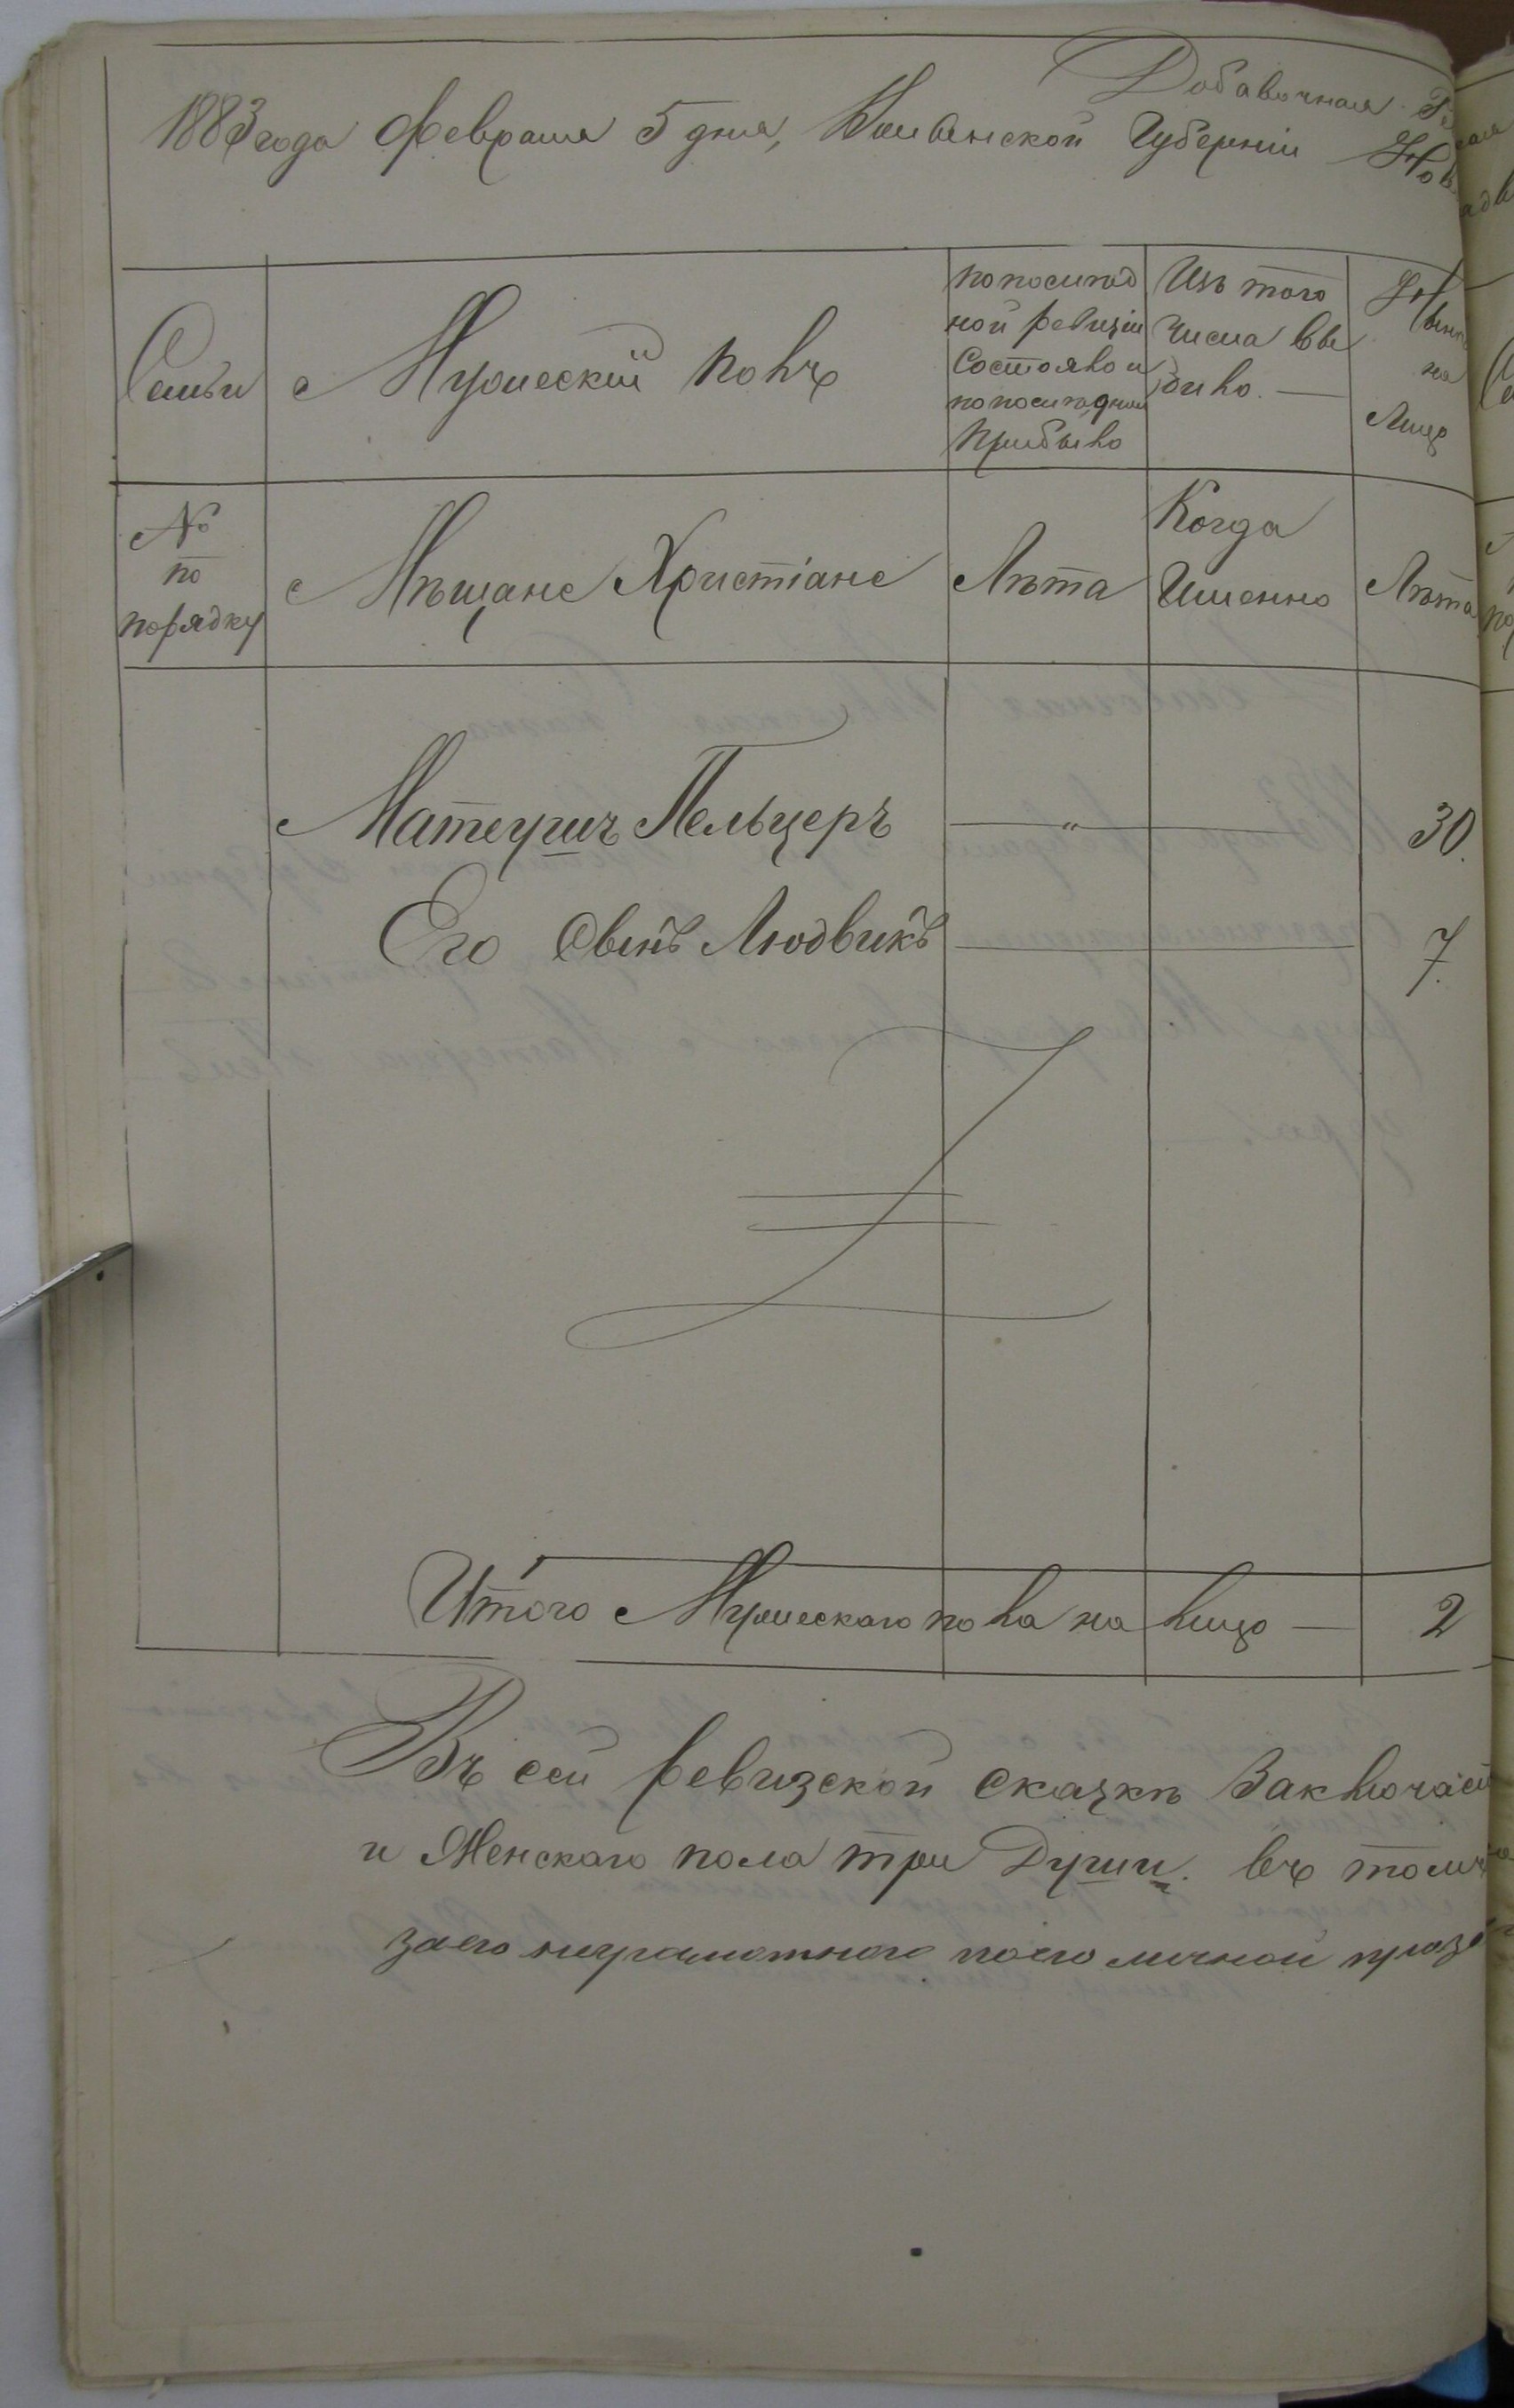 Добавочная
1883 года Февраля 5 дня, Волынской Губерніи Нов
Семьи
Мужескій полъ
по послѣд
ной ревизіи
состояло и
по послѣдней
прибыло
Изъ того
числа вы
было. —
Нынѣ
на
лицо
№
по
порядку
Мѣщане Христіане
Лѣта
Когда
Именно
Лѣта
Матеушъ Пельцеръ — " — 30.
Его Сынъ Людвикъ — 7.
Итого Мужескаго пола на лицо — 2
Въ сей ревизской сказкѣ Заключает
и Женскаго пола три Души. въ томъ
за его неграмотного по его личной прозь